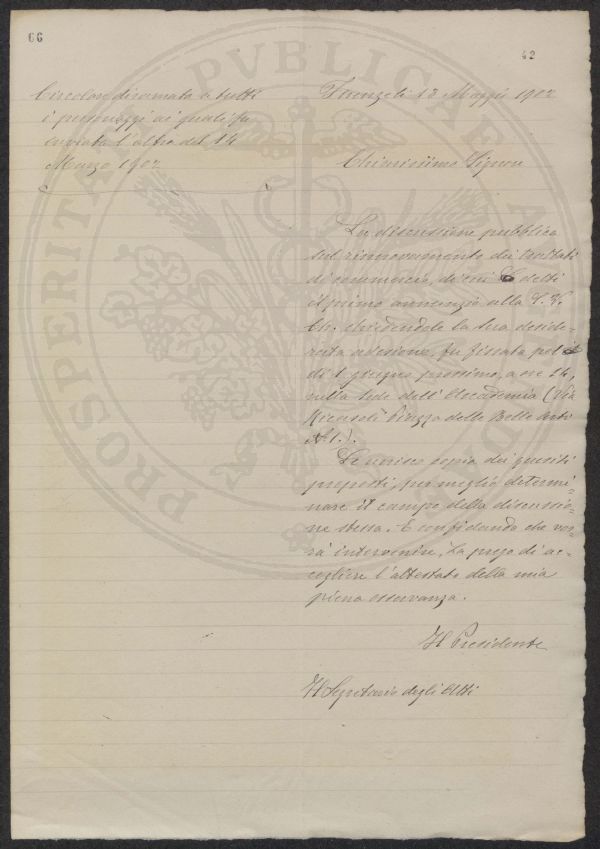 66
42
Circolare diramata a tutti
i personaggi ai quali fu
inviata l'altra del 14
Marzo 1902
Firenze li 13 Maggio 1902
Chiarissimo Signore
La discussione pubblica
sul rinnovamento dei trattati
di commercio, di cui detti
il primo annunzio alla S. V.
Ill. chiedendole la Sua deside-
rata adesione, fu fissata pel
dì 1 giugno prossimo, a ore 14,
nella Sede dell'Accademia (Via
Ricasoli Piazza delle Belle Arti
N° 1.).
Le unisco copia dei quesiti
proposti, per meglio determi-
nare il campo della discussio-
ne stessa. E confidando che vor-
rà intervenire, La prego di ac-
cogliere l'attestato della mia
piena osservanza.
Il Presidente
Il Segretario degli Atti
PROSPERITA PVBLICAE